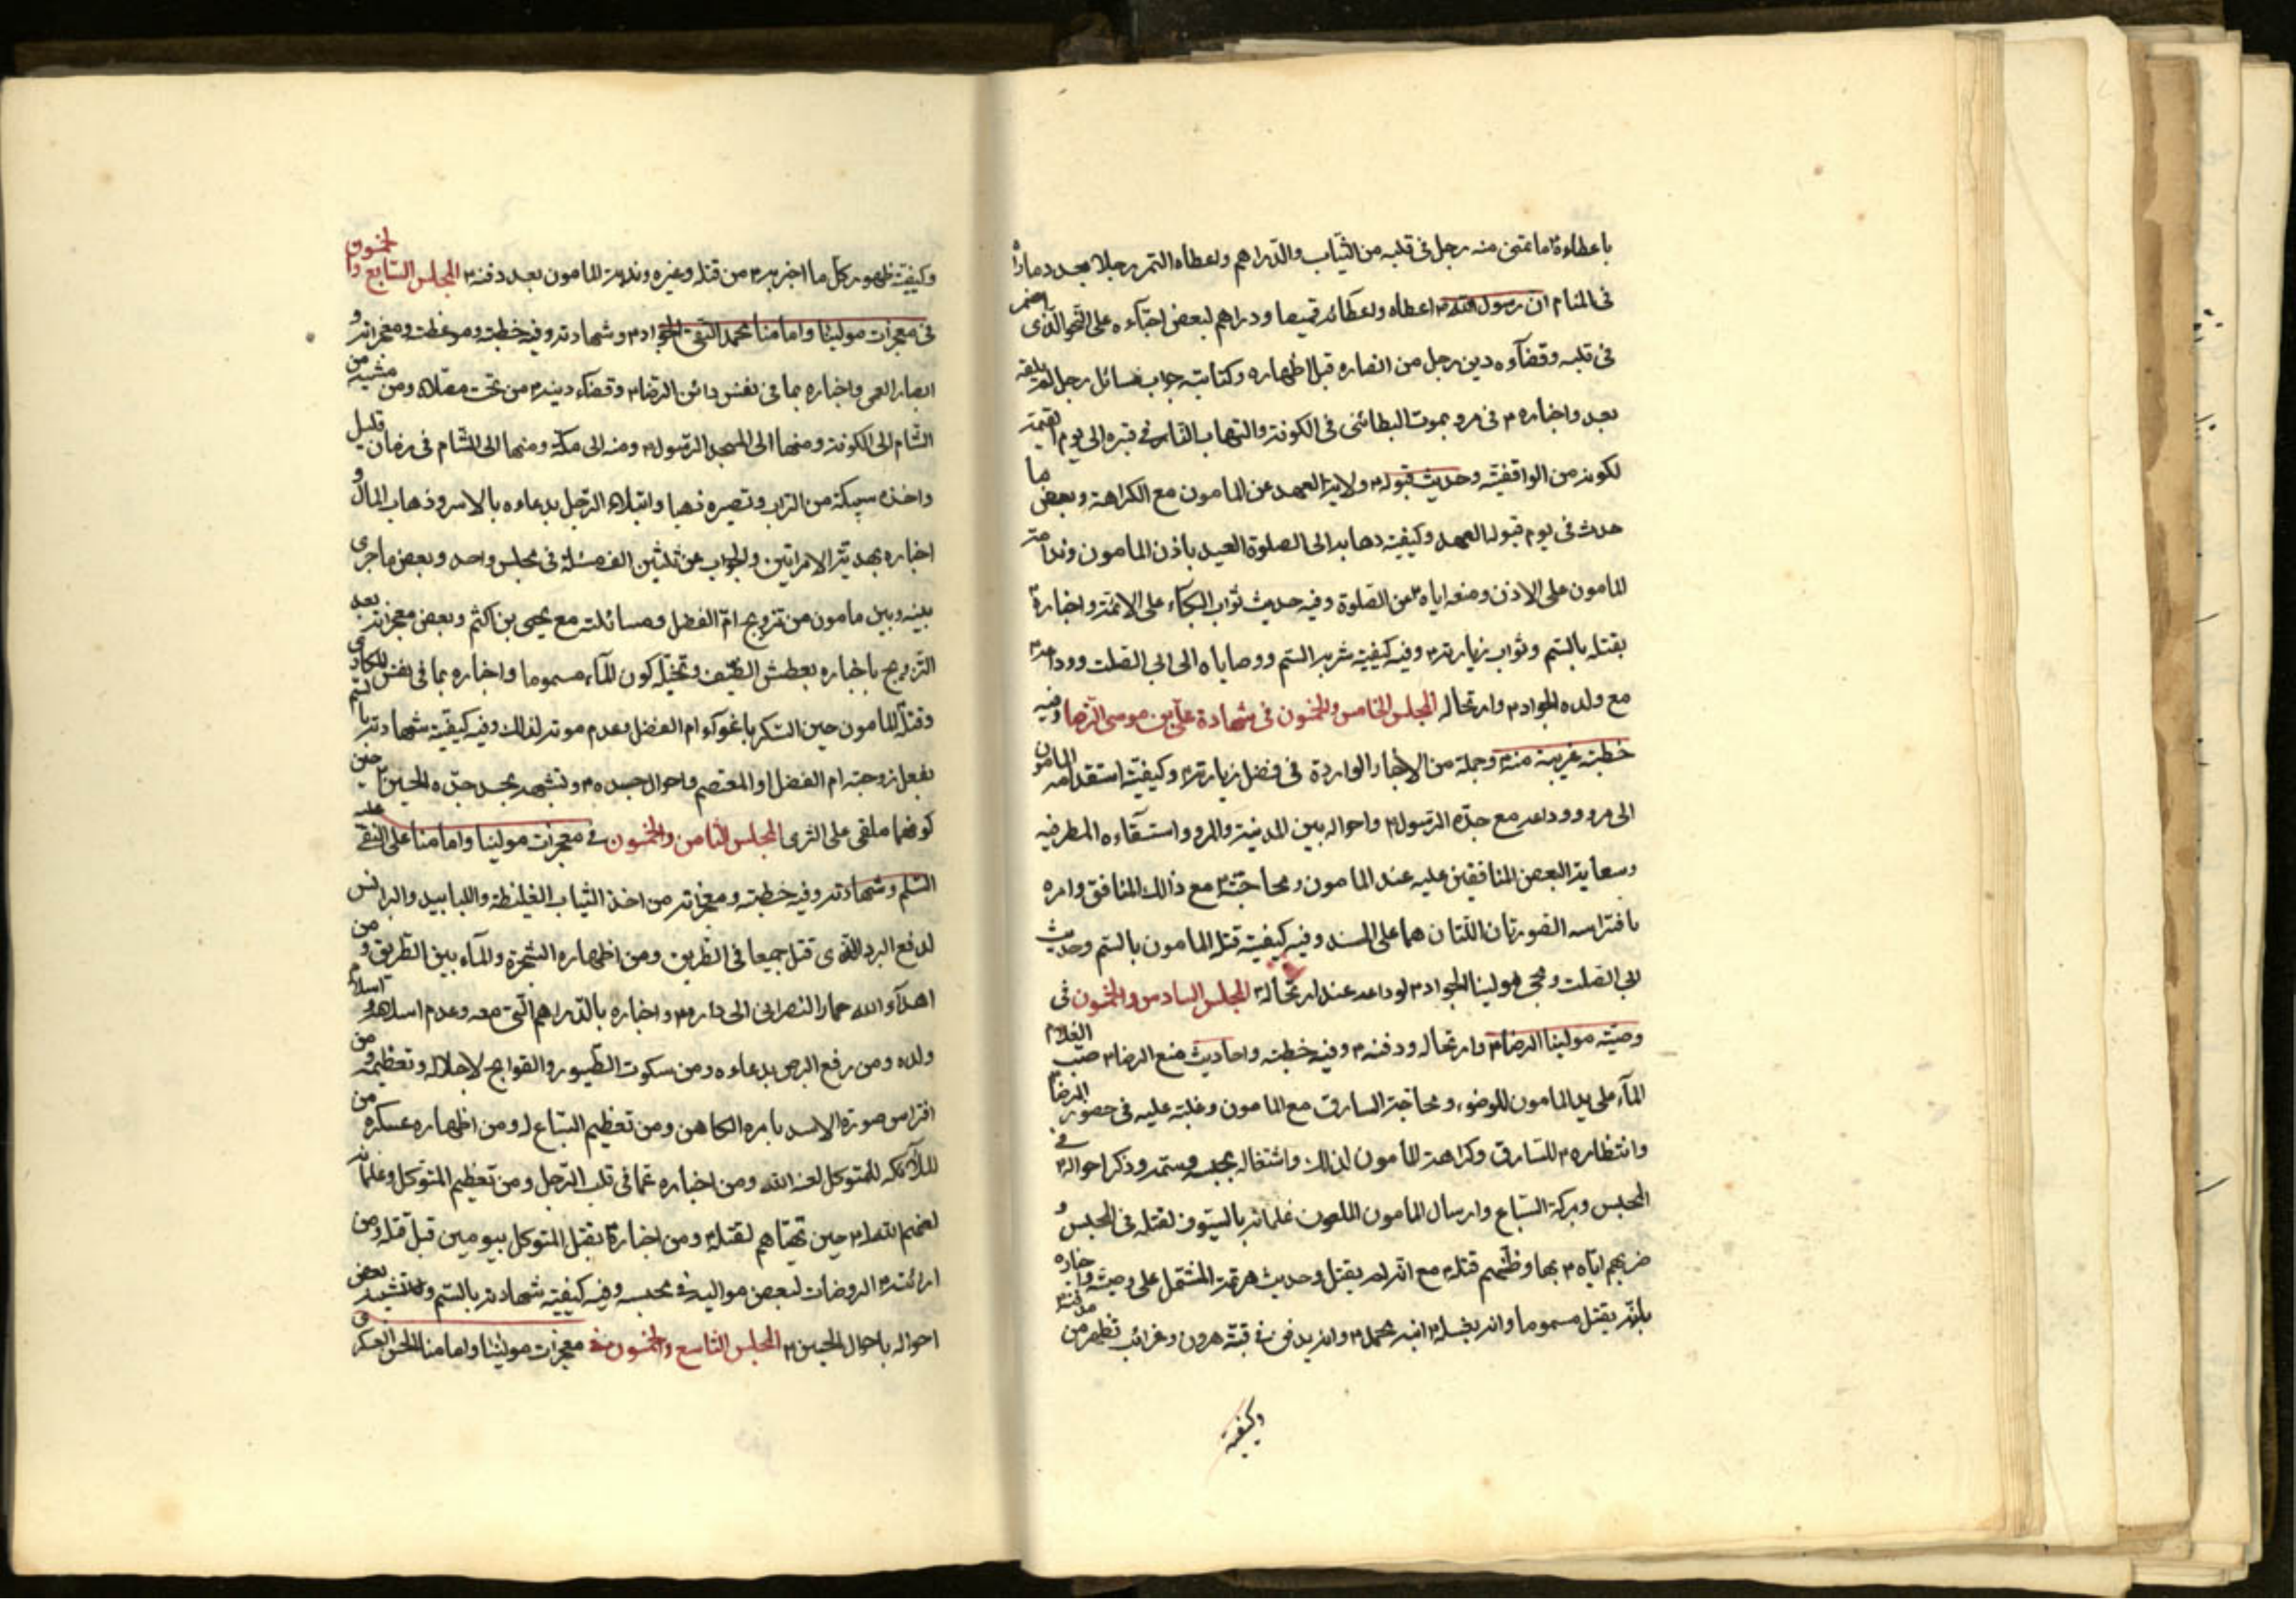 باعطاءه ما تمنى منه رجل في قلبه من الثياب والدراهم واعطاه التمر رجلا بعدد ما راه
في المنام ان رسول الله اعطاه واعطائه قميصا ودراهم لبعض احبآءه على النحو الذى اضمر
في قلبه وقضآءه دين رجل من انصاره قبل اظهاره وكتابته جواب مسائل رجل لم يلقه
بعد واخباره م في مرو بموت البطائنى في الكوفة والتهاب النار في قبره الى يوم القيمة
لكونه من الواقفية وحديث قبوله م ولاية العهد عن المامون مع الكراهة وبعض ما
حدث في يوم قبول العهد وكيفية ذهابه الى الصلوة العيد باذن المامون وندامة
المامون على الاذن ومنعه اياه عن الصلوة وفيه حديث ثواب البكاء على الائمة واخباره
بقتله بالسم وثواب زيارته م وفيه كيفية شربه السم ووصاياه الى ابى الصلت ووداعه م
مع ولده الجواد م وارتحاله المجلس الخامس والخمسون في شهادة على بن موسى الرضا وفيه
خطبة غريبة منه وجملة من الاخبار الواردة في فضل زيارته م وكيفية استقدامه المامون
الى مرو ووداعه مع جده الرسول م واحواله بين المدينة والمرو واستسقاءه المطر فيه
وسعاية البعض المنافقين عليه عند المامون ومحاجته م مع ذالك المنافق وامره
بافتراسه الصورتان اللتان هما على المسند وفيه كيفية قتل المامون بالسم وحديث
ابى الصلت ومجئ مولينا الجواد م لوداعه عند ارتحاله م المجلس السادس والخمسون في
وصية مولينا الرضا م وارتحاله ودفنه م وفيه خطبة واحاديث منع الرضا م صب الغلام
المآء على يد المامون للوضوء ومحاجة السارق مع المامون وغلبته عليه في حضور الرضا م
وانتظاره م للسارق وكراهة المأمون لذلك واشتغاله بحبسه وسمه وذكر احواله م في
المحبس وبركة السباع وارسال المامون الملعون غلمانه بالسيوف لقتله في المجلس و
ضربهم اياه م بها وظنهم قتله م مع انه لم يقتل وحديث هرثمة المشتمل على وصيته واخباره
بانه يقتل مسموما وانه يغسله م ابنه محمد م وانه يدفن في قبة هرون وغرائب تظهر من مدفنه
وكيفية
وكيفية ظهور كل ما اخبر به م من قتله وغيره وندامة المامون بعد دفنه م المجلس السابع والخمسون
في معجزات مولينا وامامنا محمد التقى الجواد م وشهادته وفيه خطبة وموعظة ومعجزاته و
ابصار العمى واخباره بما في نفس دائن الرضا م وقضاء دينه م من تحت مصلاه ومن مشيه من
الشام الى الكوفة ومنها الى المسجد الرسول م ومنه الى مكة ومنها الى الشام في زمان قليل
واخذه سبيكة من التراب وتصيره ذهبا وابتلاء الرجل بدعاءه بالاسر وذهاب المال و
اخباره بهدية الامراتين والجواب عن ثلثين الف مسئلة في مجلس واحد وبعض ما جرى
بينه وبين مامون من تزويج ام الفضل ومسائلته مع يحيى بن اكثم وبعض معجزاته بعد
التزويج باخباره بعطش الضيف وتخيله كون المآء مسموما واخباره بما في نفس المكارى
وقتل المامون حين السكر باغوآء ام الفضل وعدم موته لذلك وفيه كيفية شهادته بالسم
بفعل زوجته ام الفضل او المعتصم واحوال جسده م وتشبيهه بجسد جده الحسين م حين
كونهما ملقى على الثرى المجلس الثامن والخمسون في معجزات مولينا وامامنا على النقى عليه
السلم وشهادته وفيه خطبة ومعجزاته من اخذ الثياب الغليظة واللبابيد والبرانس
لدفع البرد الذى قتل جمعا في الطريق ومن اظهاره الشجرة والمآء بين الطريق و من
اهدآء الله حمار النصرانى الى داره م واخباره بالدراهم التى معه وعدم اسلامه و اسلام
ولده ومن رفع البرص بدعاءه ومن سكوت الطيور والقوابج لاجلاله وتعظيمه و من
افتراس صورة الاسد بامره الكاهن ومن تعظيم السباع له ومن اظهاره عسكره من
الملآئكة للمتوكل لعنه الله ومن اخباره عما في قلب الرجل ومن تعظيم المتوكل وغلمانه
لعنهم الله له م حين تهيأهم لقتله م ومن اخباره بقتل المتوكل بيومين قبل قتله ومن
ارائته م الروضات لبعض مواليه في محبسه وفيه كيفية شهادته بالسم وتشبيه بعض
احواله باحوال الحسين م المجلس التاسع والخمسون في معجزات مولينا وامامنا الحسن العسكرى